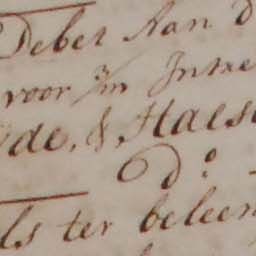 Debet Aan D
voor Zm Intre
de, & Haes
D.o
ls ter beleen